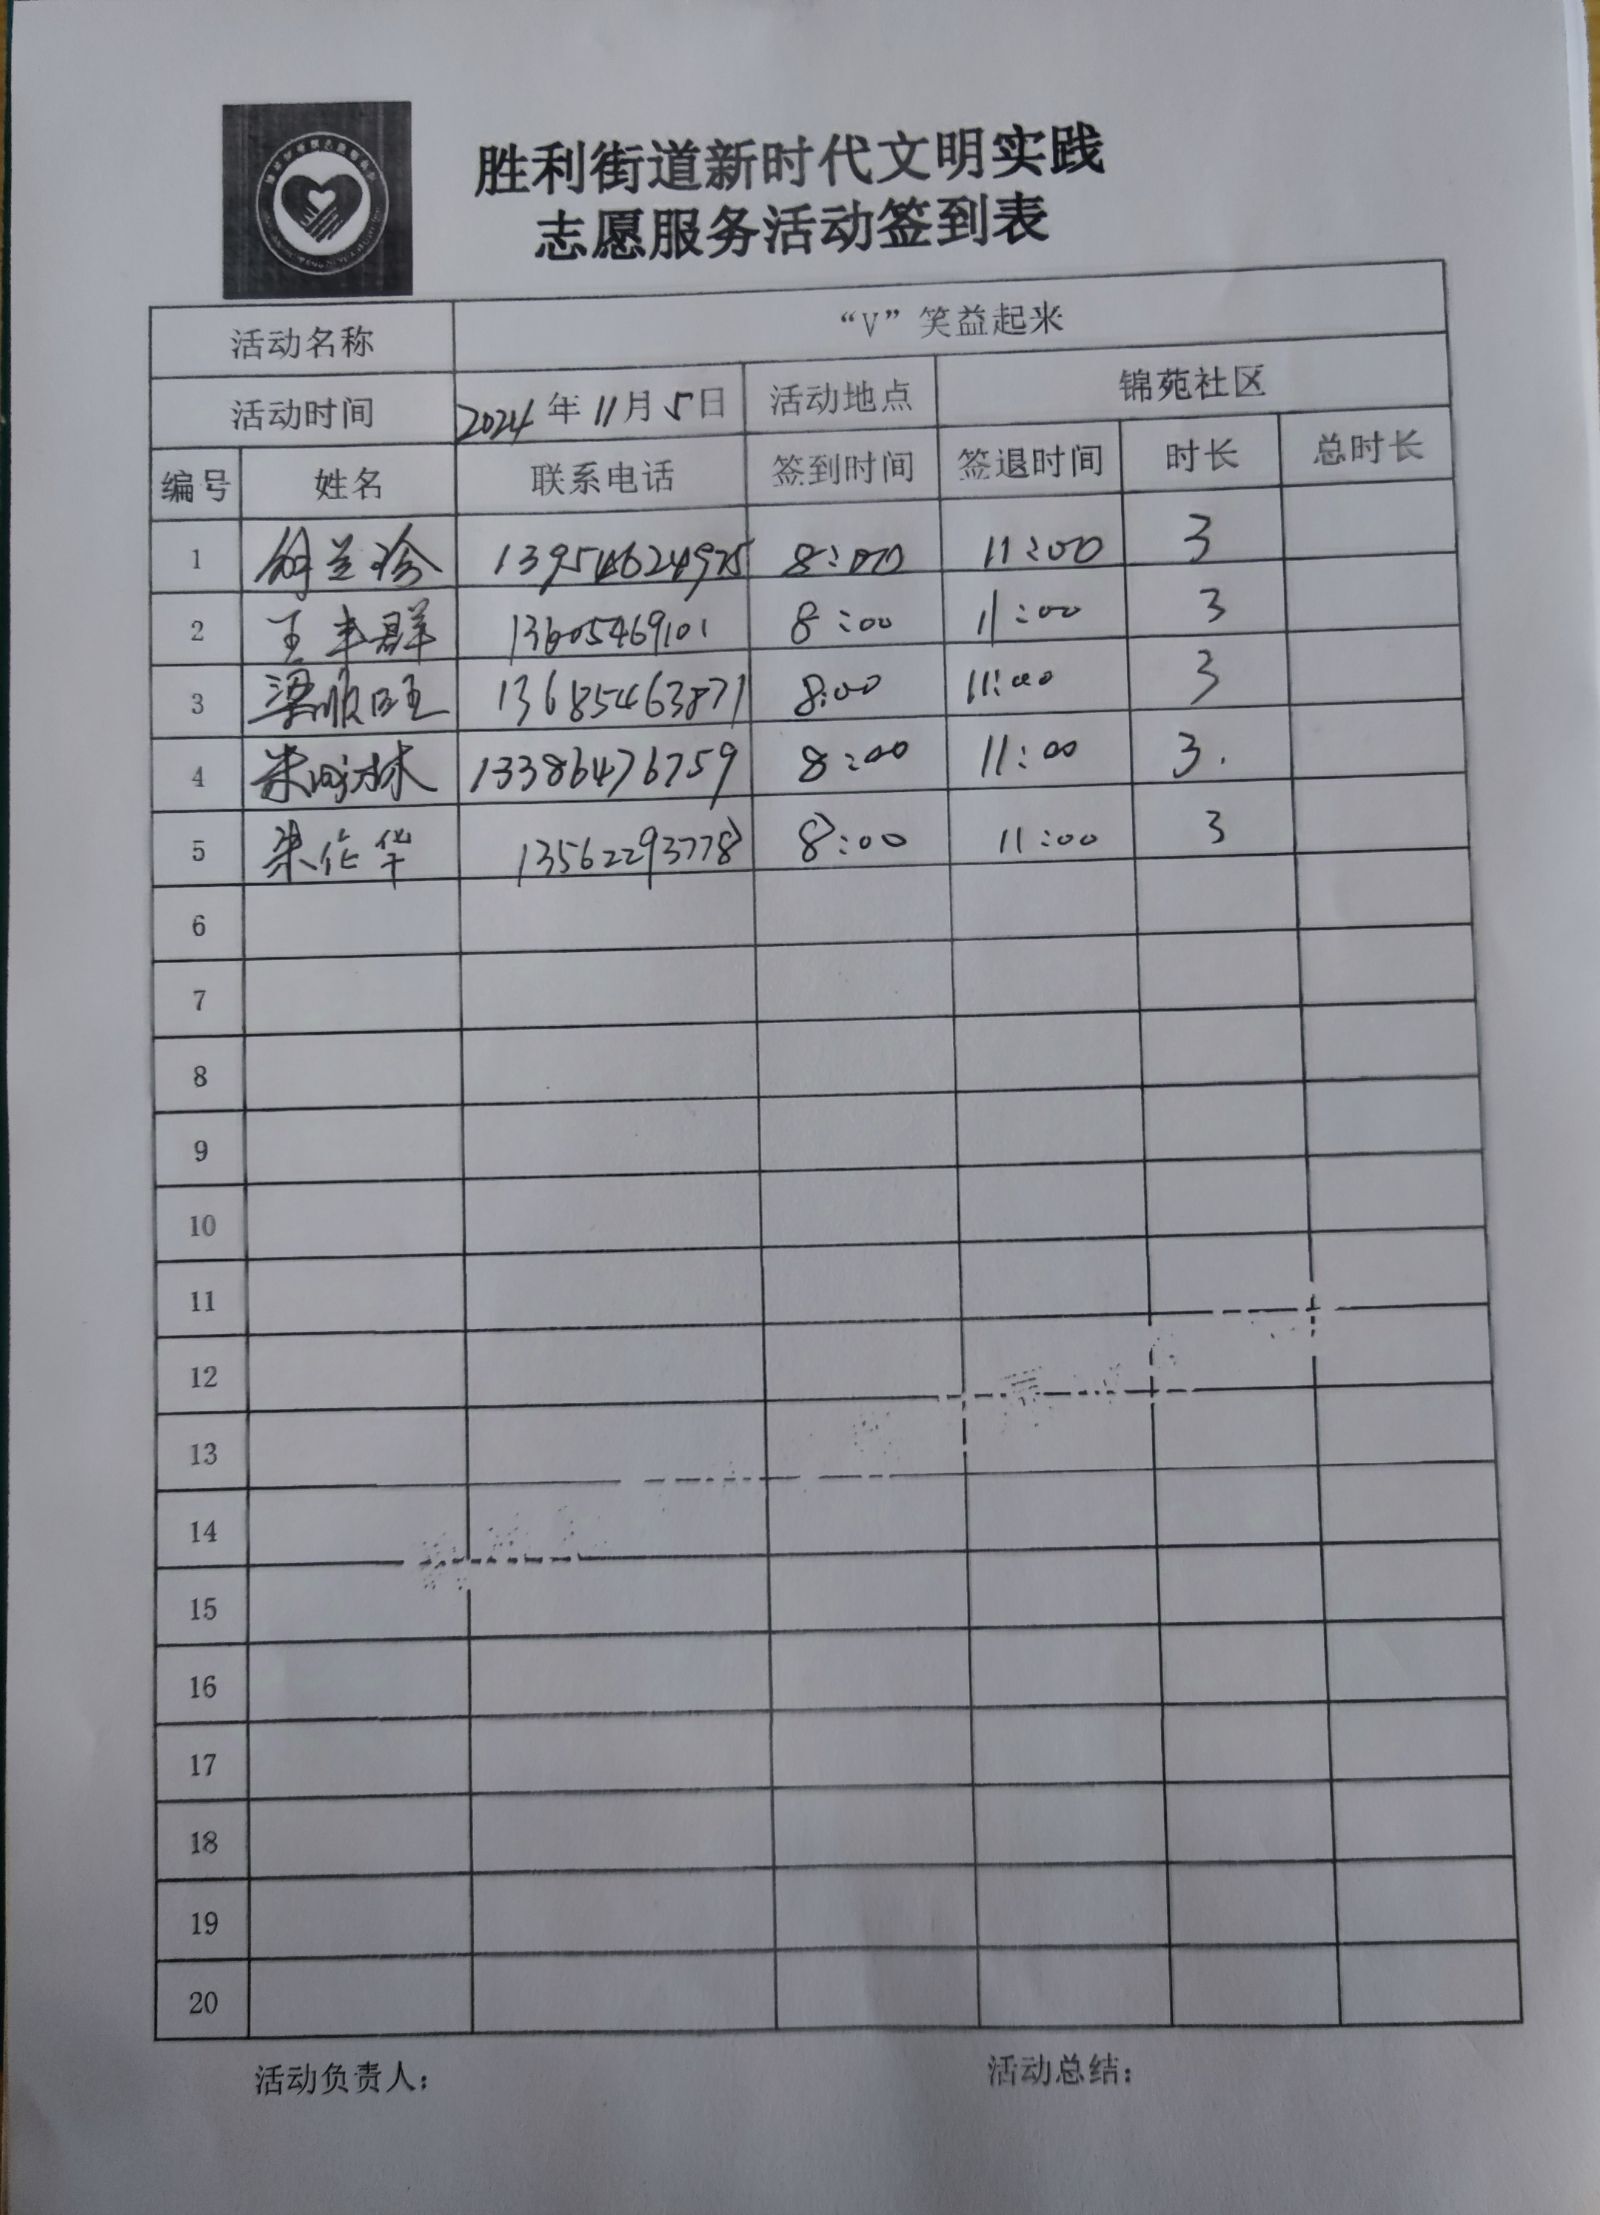 胜利街道新时代文明实践
志愿服务活动签到表
活动名称 “V”笑益起来
活动时间 2024年11月5日 活动地点 锦苑社区
编号 姓名 联系电话 签到时间 签退时间 时长 总时长
1 兰珍 13954624975 8:00 11:00 3
2 王丰群 13605469101 8:00 11:00 3
3 梁顺旺 13685463871 8:00 11:00 3
4 林 13386476759 8:00 11:00 3.
5 朱作华 13562293778 8:00 11:00 3
6
7
8
9
10
11
12
13
14
15
16
17
18
19
20
活动负责人： 活动总结：